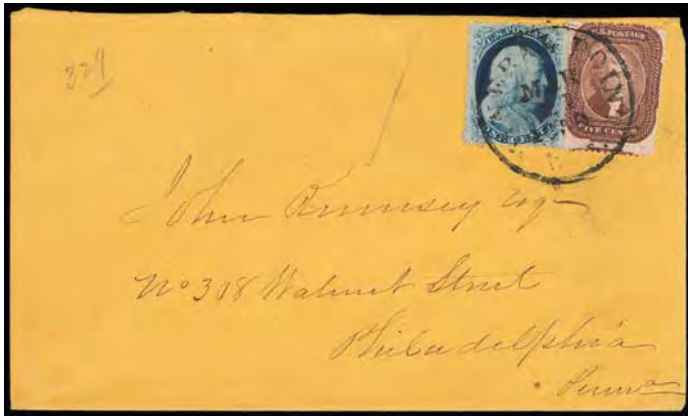 329
U.S. POSTAGE
U.S. POSTAGE
ONE CENT
FIVE CENTS
John Rumsey Esq
No 318 Walnut Street
Philadelphia
Penna